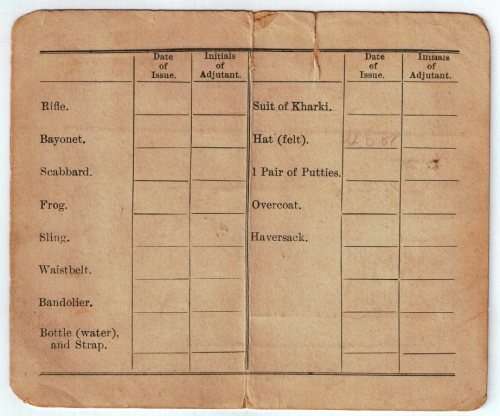 Date of Issue.
Initials of Adjutant.
Rifle.
Bayonet.
Scabbard.
Frog.
Sling.
Waistbelt.
Bandolier.
Bottle (water),
and Strap.
Date of Issue.
Initials of Adjutant.
Suit of Kharki.
Hat (felt).
1 Pair of Putties.
Overcoat.
Haversack.